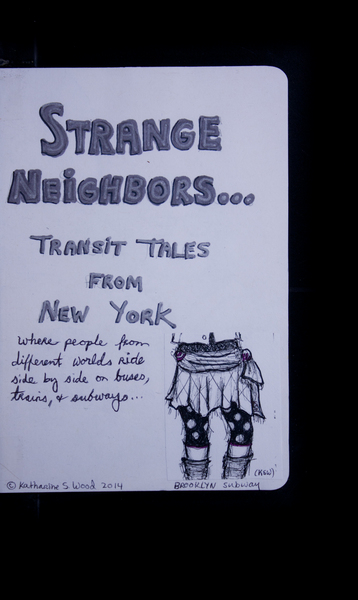 STRANGE
NEIGHBORS...
TRANSIT TALES
FROM
NEW YORK
where people from
different worlds ride
side by side on buses,
trains, & subways...
(KSW)
© Katharine S Wood 2014
BROOKLYN SUBWAY